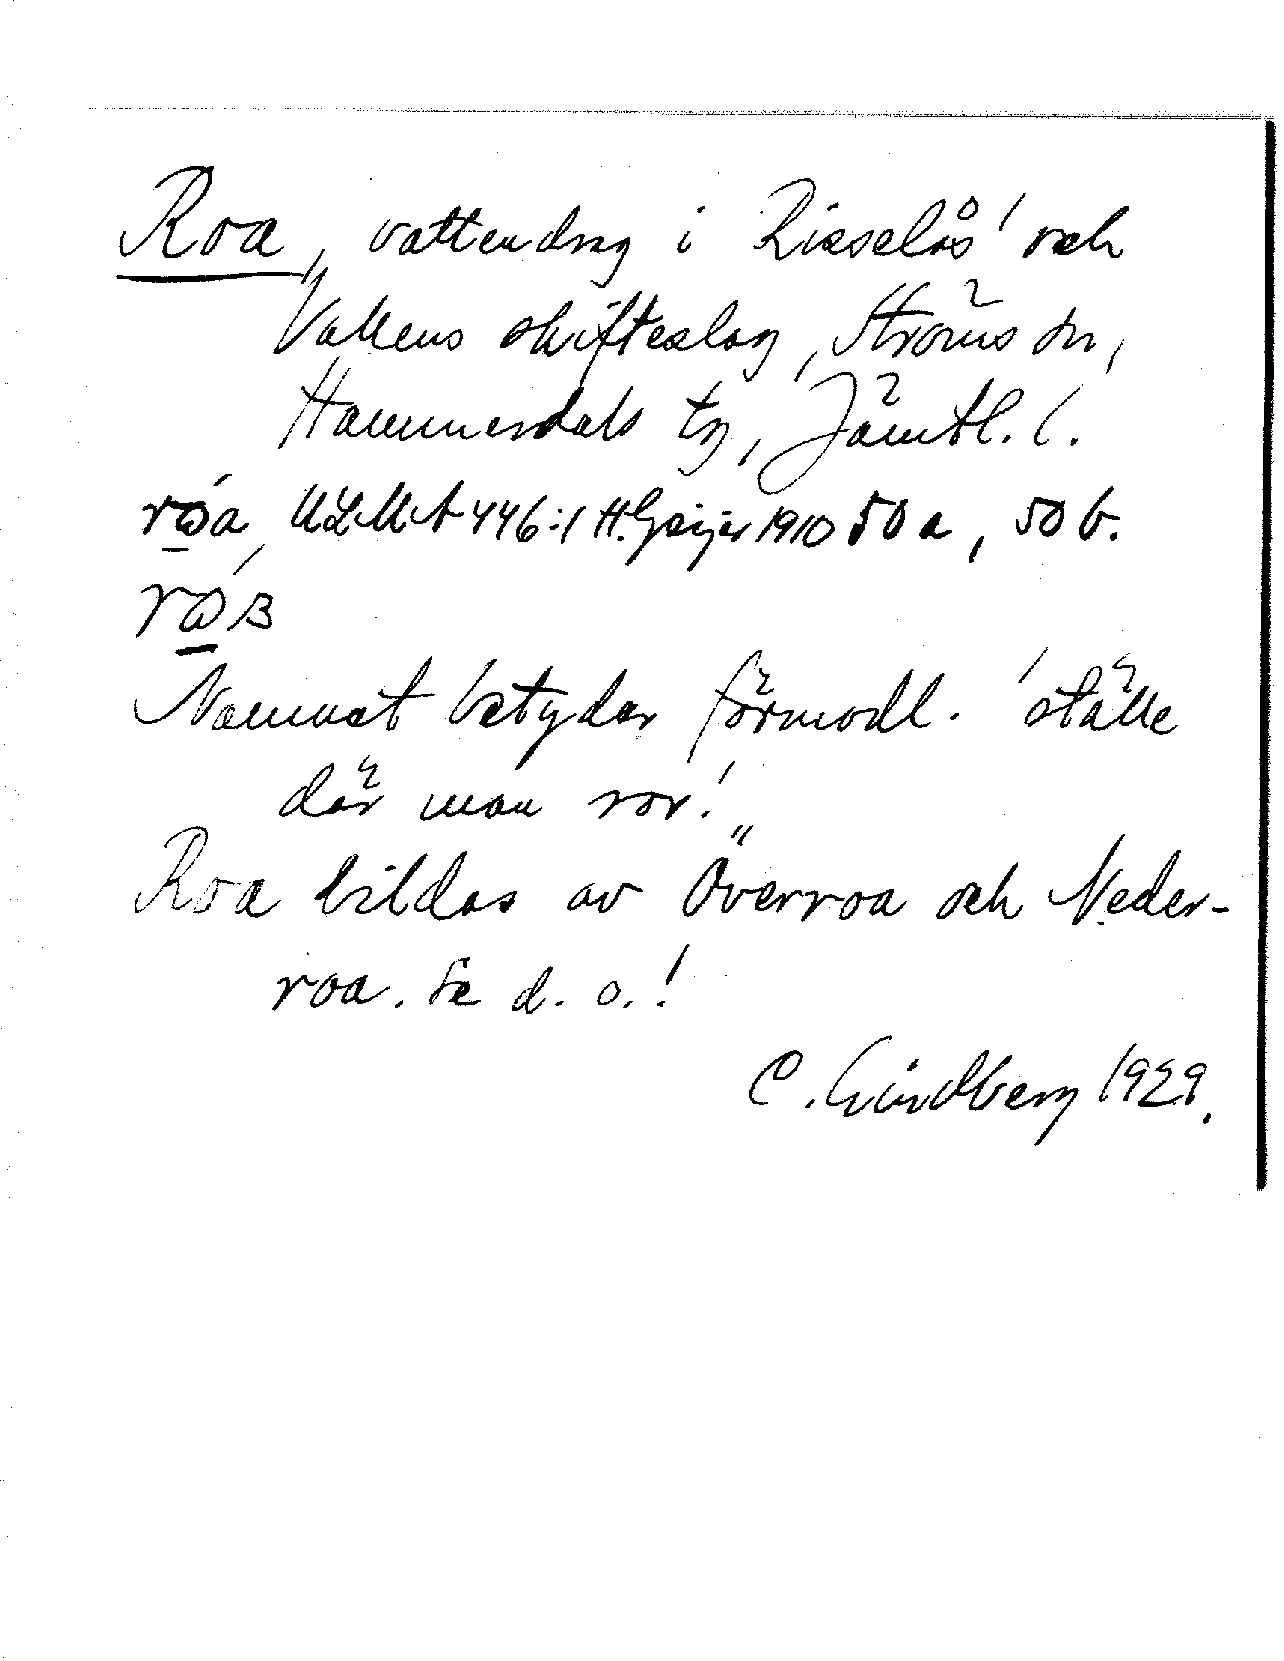 Roa, vattendrag i Risselås' och
Vallens skifteslag, Ströms sn,
Hammerdals tg, Jämtl. l.
róa, ULMA 446:1 H. Geijer 1910 50 a, 50 b.
Namnet betyder förmodl. 'ställe
där man ror!'
Roa bildas av Överroa och Neder-
roa. Se d. o.!
C. Lindberg 1929.